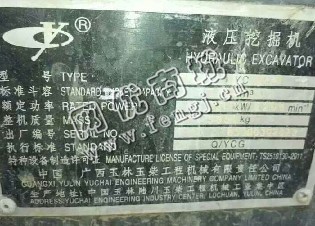 ®
液压挖掘机
HYDRAULIC EXCAVATOR
型号 TYPE
标准斗容 STANDARD
额定功率 RATED POWER kW/ min⁻¹
整机质量 MASS kg
出厂编号 SERIAL NO
执行标准 STANDARD Q/YCG
特种设备制造许可证 MANUFACTURE LICENSE OF SPECIAL EQUIPMENT: TS2510
中国 广西玉林玉柴工程机械有限责任公司
GUANGXI YULIN YUCHAI ENGINEERING MACHINERY COMPANY LIMITED CHINA
地址 中国玉林陆川玉柴工程机械工业集中区
ADDRESS:YUCHAI ENGINEERING INDUSTRY CENTER, LOCHUAN, YULIN, CHINA